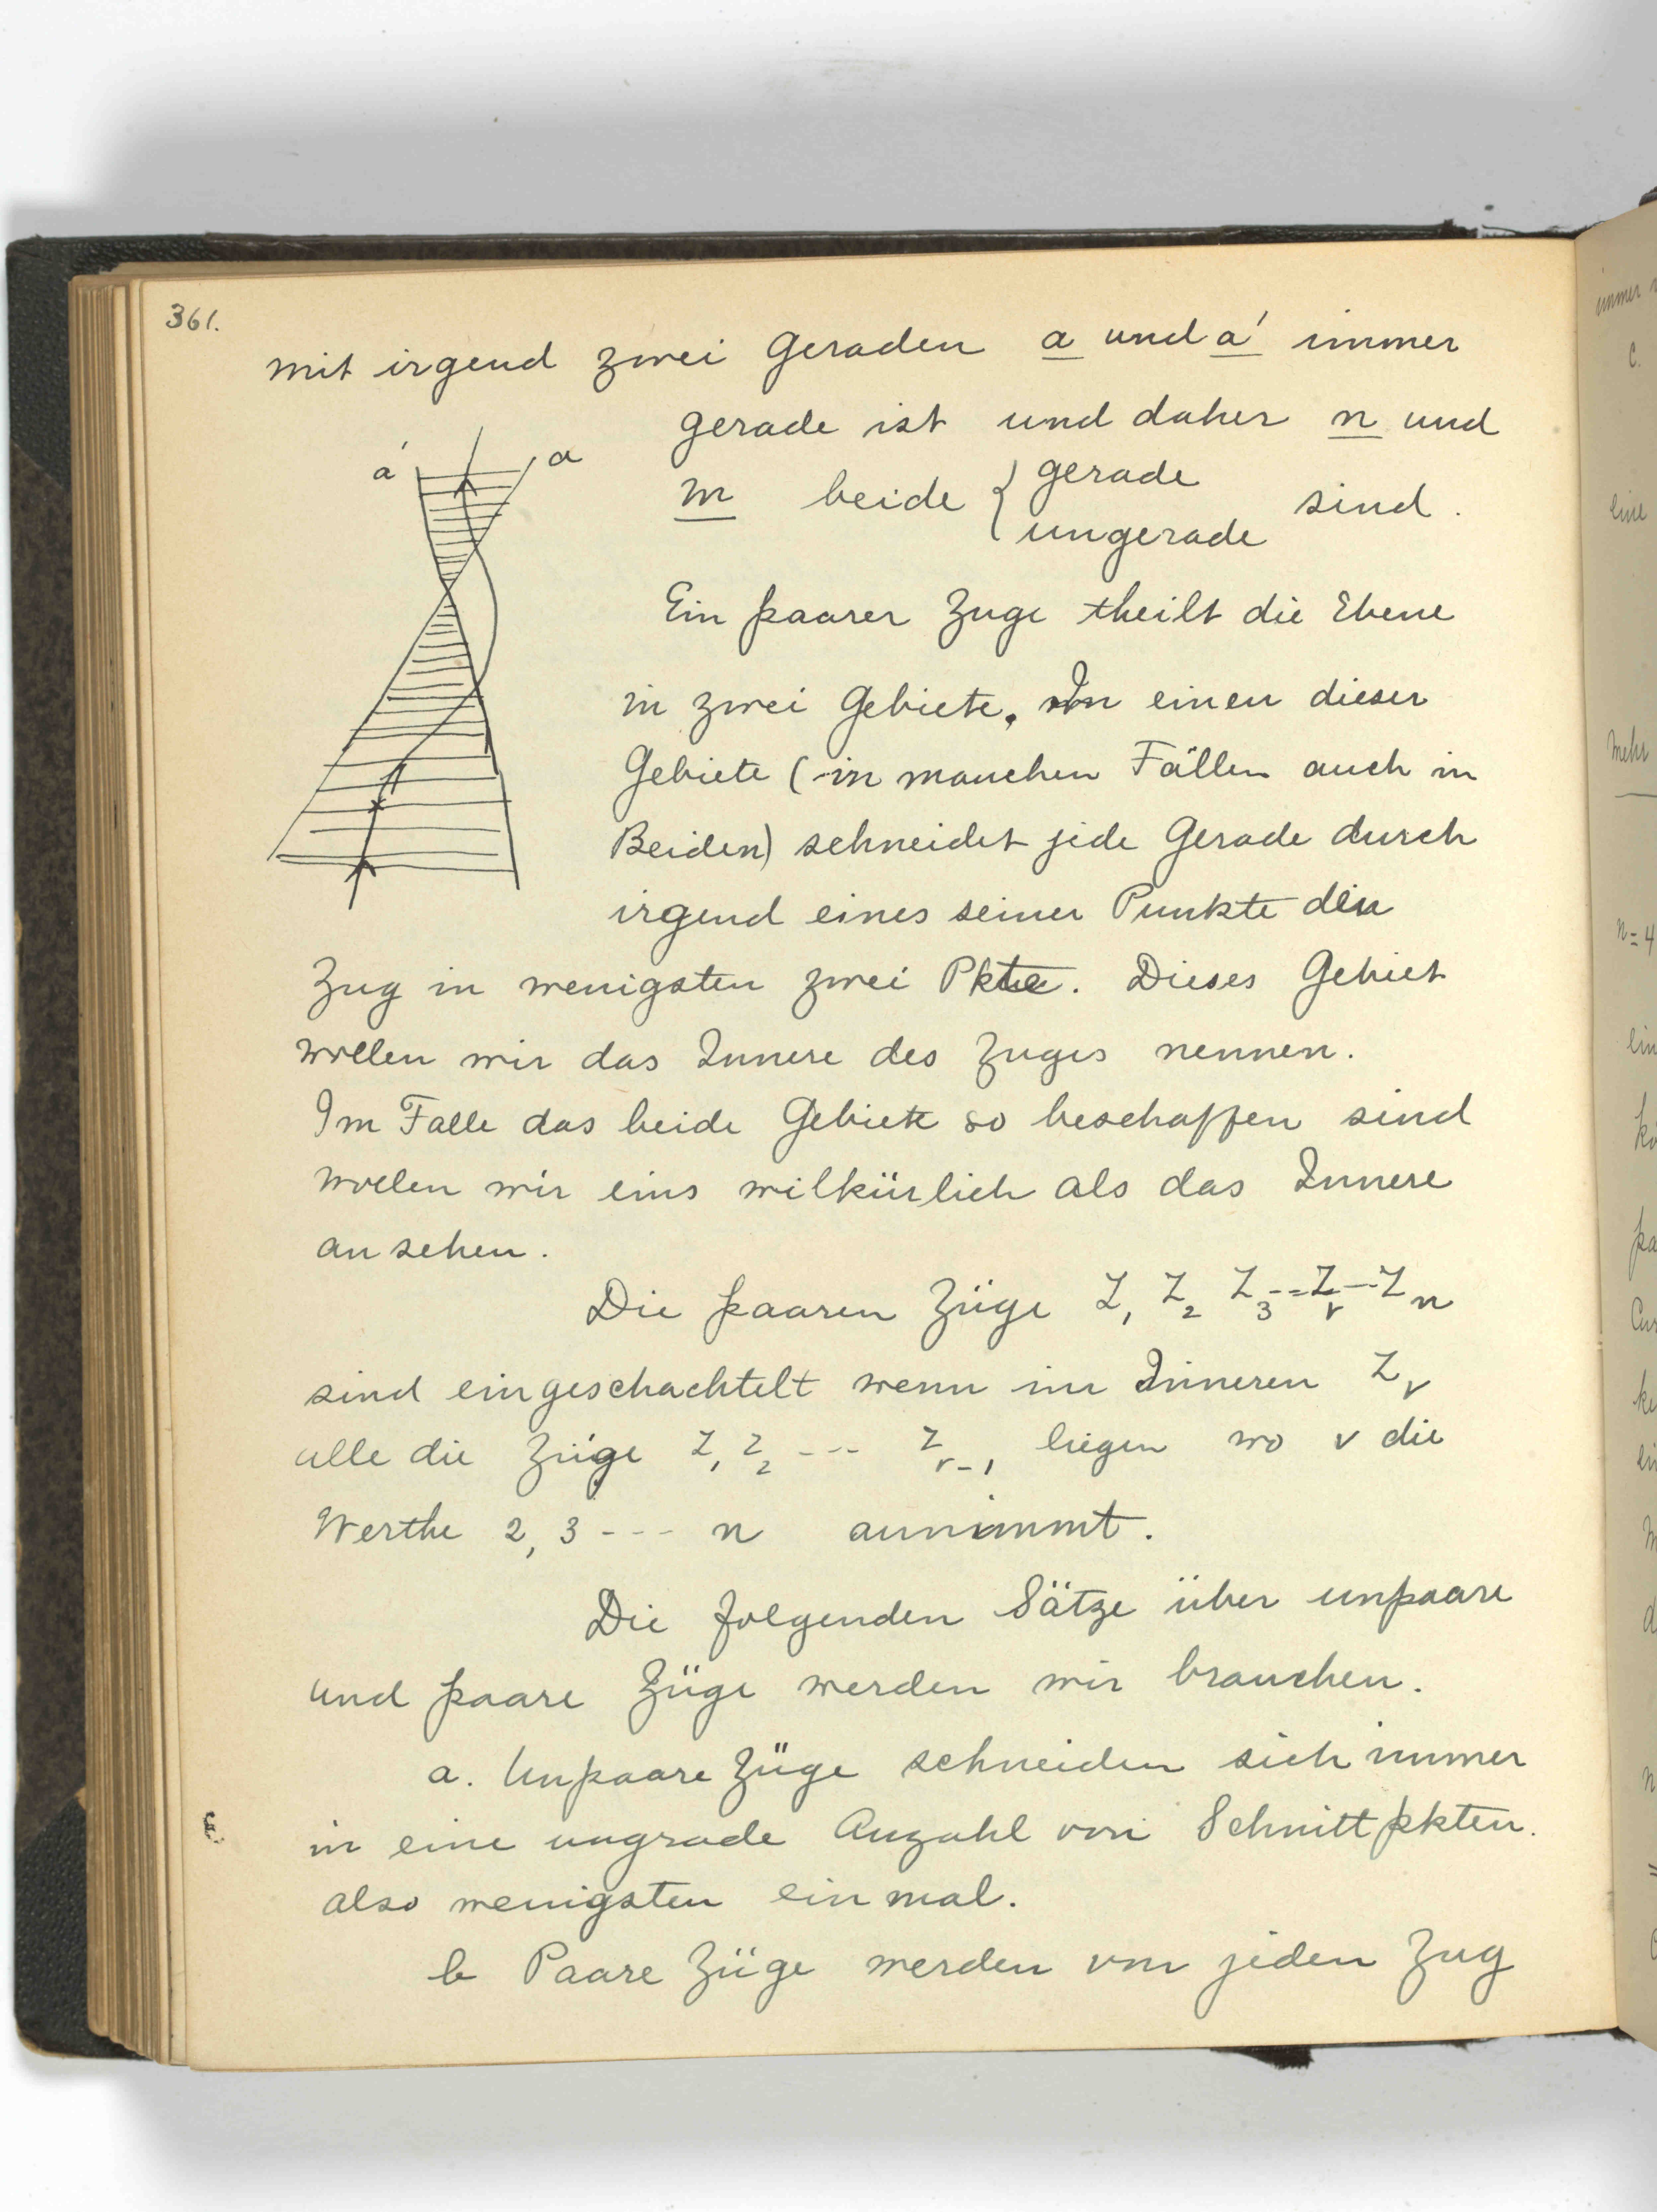 361.
mit irgend zwei Geraden a und a' immer
gerade ist und daher n und
a' a
m beide { gerade ungerade sind.
Ein paarer Zuge theilt die Ebene
in zwei Gebiete. In einen dieser
Gebiete (in manchen Fällen auch in
Beiden) schneidet jede Gerade durch
irgend eines seiner Punkte den
Zug in wenigsten zwei Pkte. Dieses Gebiet
wollen wir das Innere des Zuges nennen.
Im Falle das beide Gebiete so beschaffen sind
wollen wir eins wilkürlich als das Innere
ansehen.
Die paaren Züge Z₁ Z₂ Z₃ -- Zᵥ -- Zₙ
sind eingeschachtelt wenn im Inneren Zᵥ
alle die Züge Z₁ Z₂ --- Zᵥ₋₁ liegen wo v die
Werthe 2, 3 --- n annimmt.
Die folgenden Sätze über unpaare
und paare Züge werden wir brauchen.
a. Unpaare Züge schneiden sich immer
in eine ungrade Anzahl von Schnittpkten.
also wenigsten einmal.
b Paare Züge werden von jeden Zug